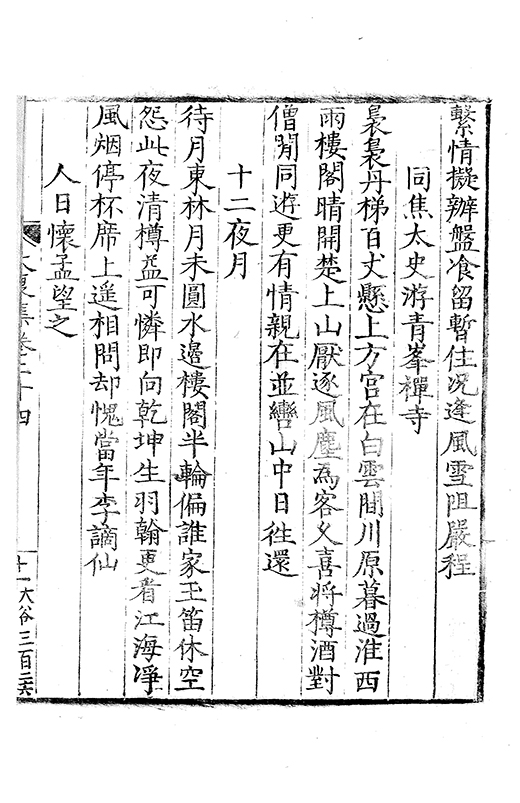 繫情擬辦盤飡留暫住况逢風雪阻嚴程
同焦太史游青峯禪寺
裊裊丹梯百丈懸上方宮在白雲間川原暮過淮西
雨樓閣晴開楚上山厭逐風塵為客久喜將樽酒對
僧閒同遊更有情親在並轡山中日往還
十二夜月
待月東林月未圓水邊樓閣半輪偏誰家玉笛休空
怨此夜清樽益可憐即向乾坤生羽翰更看江海淨
風烟停杯席上遥相問却愧當年李謫仙
人日懷孟望之
大復集卷二十四
十一大谷三百二六